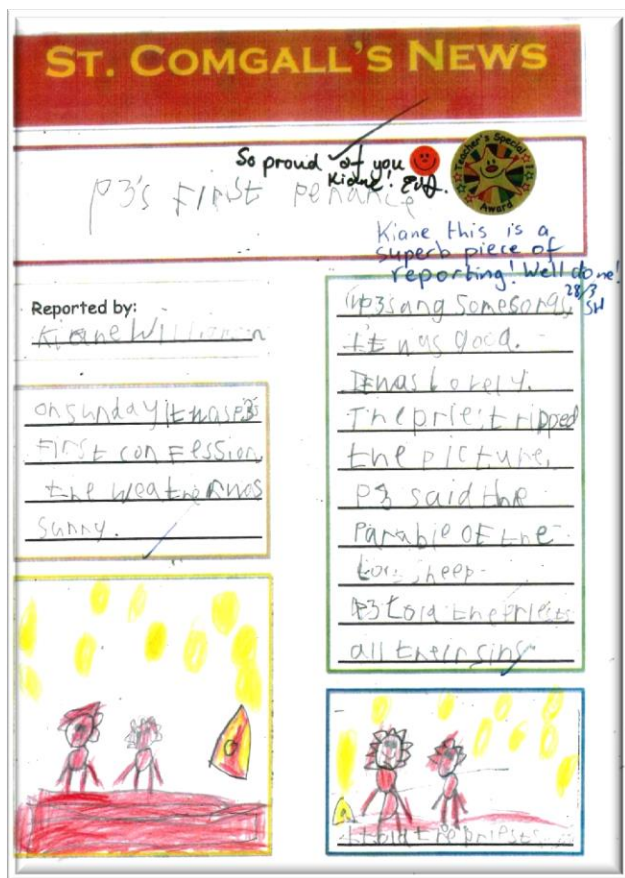 ST. COMGALL'S NEWS
So proud of you
Kiane!
P3's First penance
Teacher's Special
Award
Kiane this is a
superb piece of
reporting! Well done!
28/3
SH
Reported by:
Kiane
on sunday it was P3's
First conFession
the weather was
sunny.
P3 sang Some songs
It was good.
It was lovely.
The priest ripped
the picture.
P3 said the
Parable OF the
Lost sheep.
P3 told the priests
all their sins
I told the priests